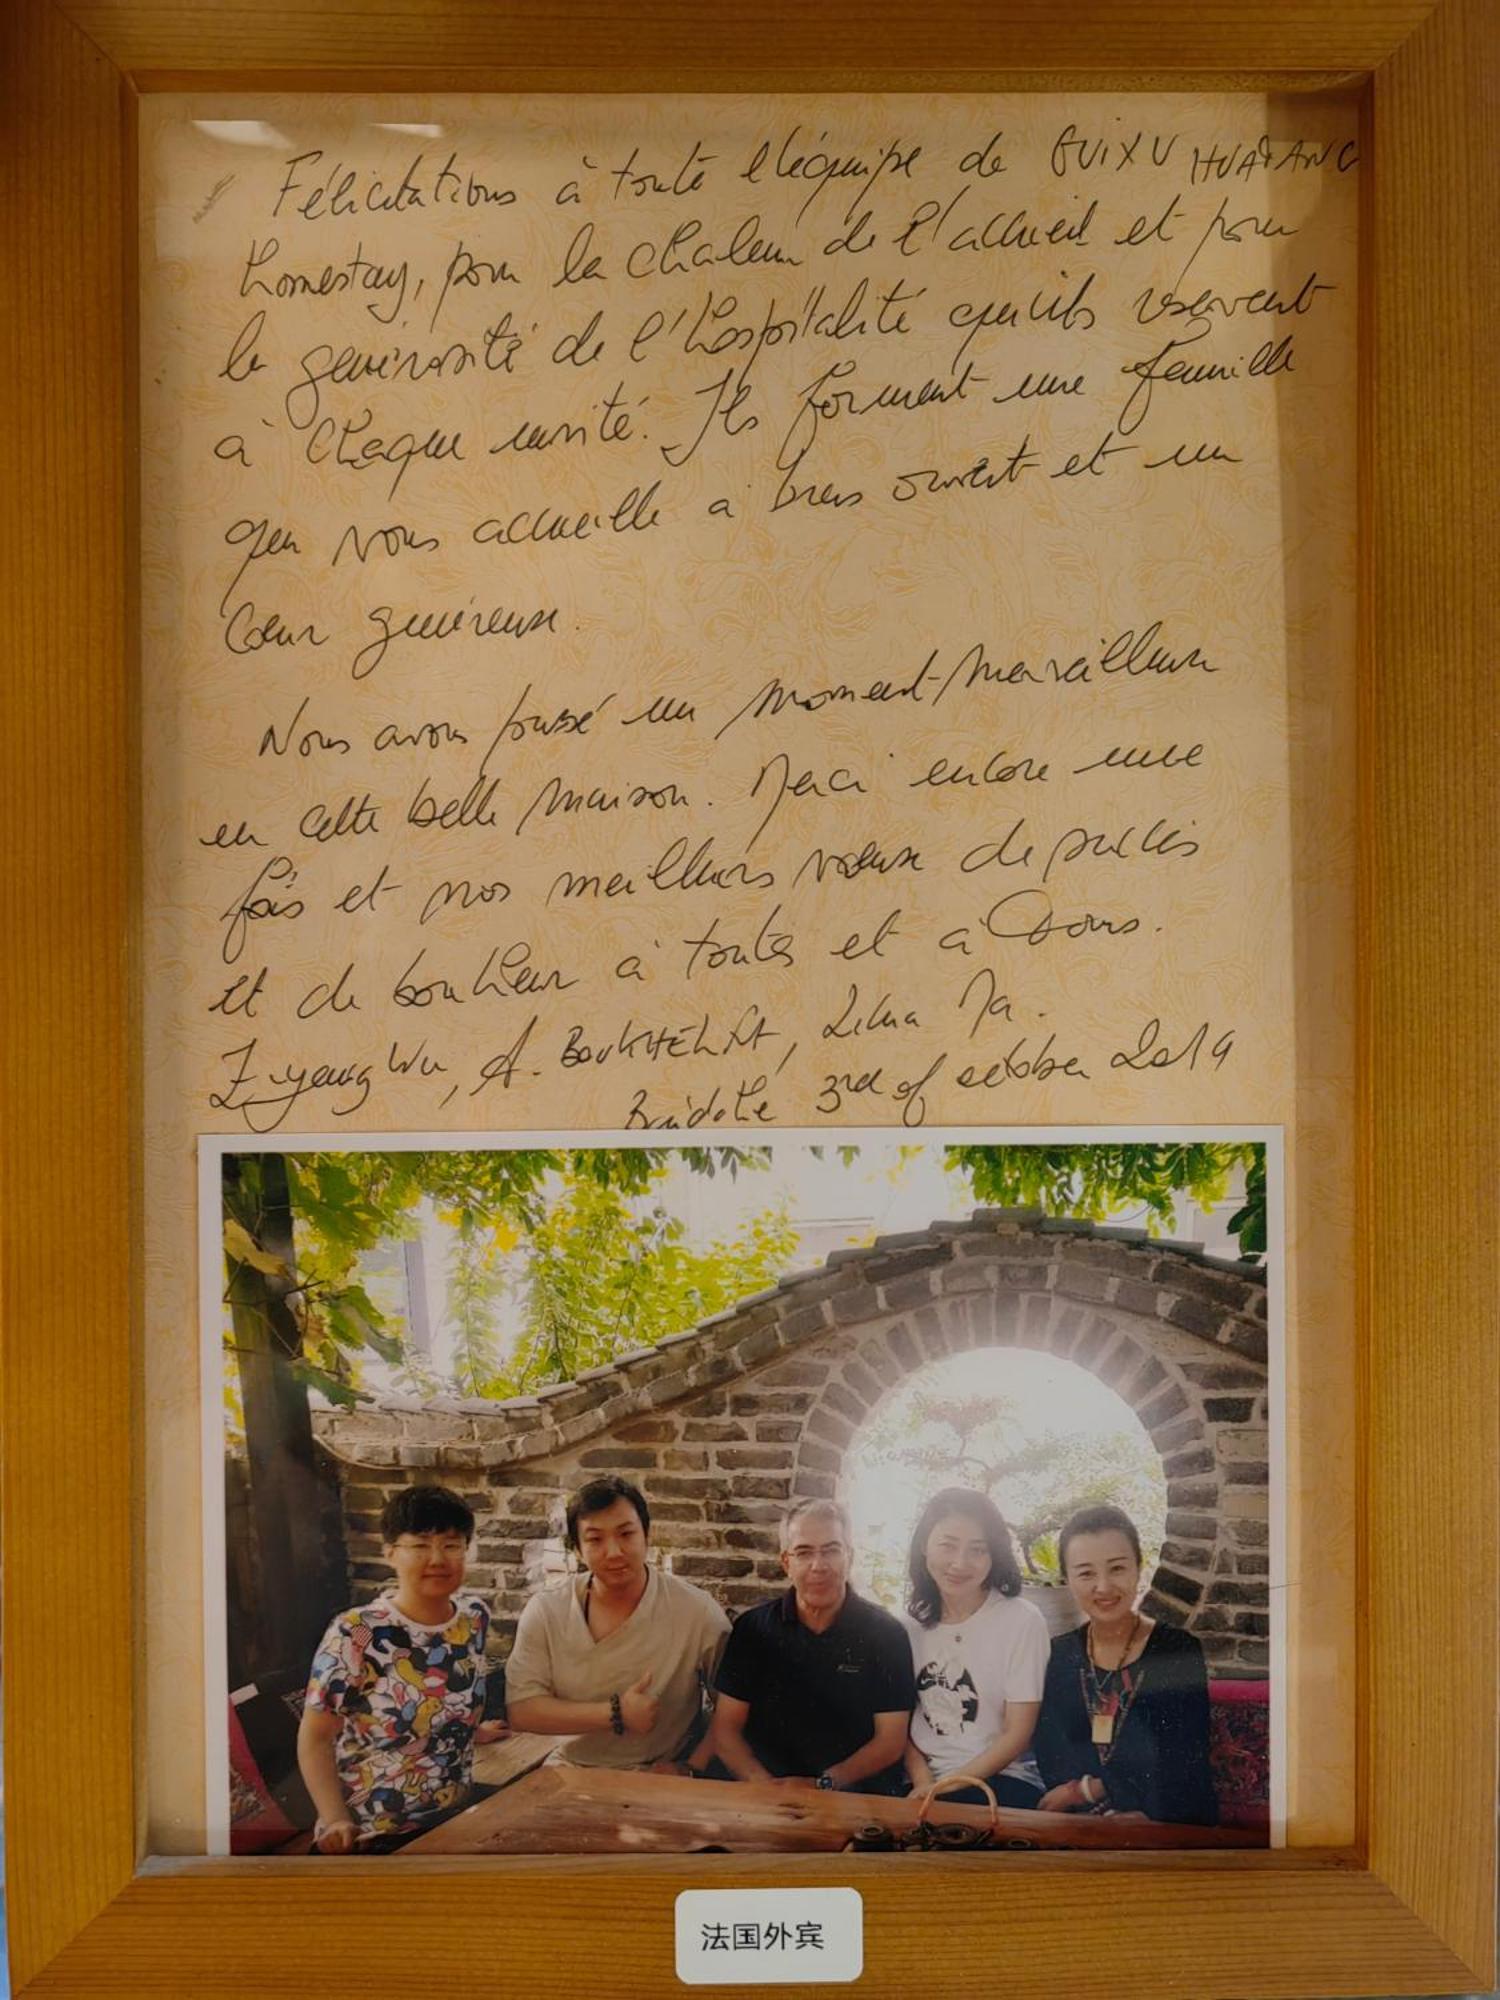 Félicitations à toute l'équipe de GUIXU HUATANG
homestay, pour la chaleur de l'accueil et pour
la générosité de l'hospitalité qu'ils réservent
à chaque invité. Ils forment une famille
qui vous accueille à bras ouvert et un
Cœur généreux.
Nous avons passé un moment merveilleux
en cette belle maison. Merci encore une
fois et nos meilleurs vœux de succès
et de bonheur à toutes et à tous.
Ziyang Wu, A. Lihua Ma.
3rd of october 2019
法国外宾